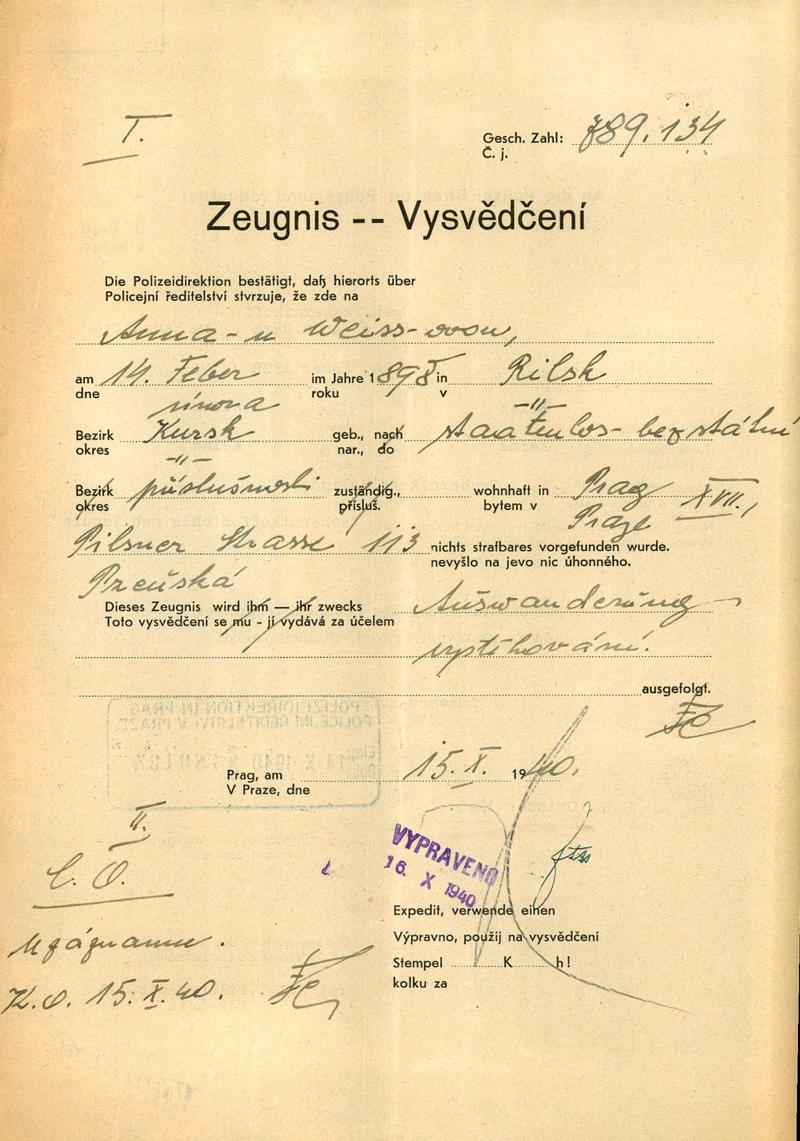 I.
Gesch. Zahl: 789.134
Č. j.
Zeugnis -- Vysvědčení
Die Polizeidirektion bestätigt, daß hierorts über
Policejní ředitelství stvrzuje, že zde na
Anna-u Weiss-ovou,
am 14. Feber im Jahre 1898 in Rilsk
dne února roku v -"-
Bezirk Kursk geb., nach staatenlos- bez státní
okres -"- nar., do
Bezirk příslušnosti zuständig., wohnhaft in Prag XVII.,
okres přísluš. bytem v Praze
Pilsner Strasse 113 nichts strafbares vorgefunden wurde.
nevyšlo na jevo nic úhonného.
Dieses Zeugnis wird ihm — ihr zwecks Auswanderung
Toto vysvědčení se mu - jí vydává za účelem
vystěhování.
ausgefolgt.
Prag, am 15. X. 1940.
V Praze, dne
II.
VYPRAVENO
16. X 1940
Expedit, verwende einen
Výpravno, použij na vysvědčení
Stempel K h!
kolku za
K.o. 15. X. 40.